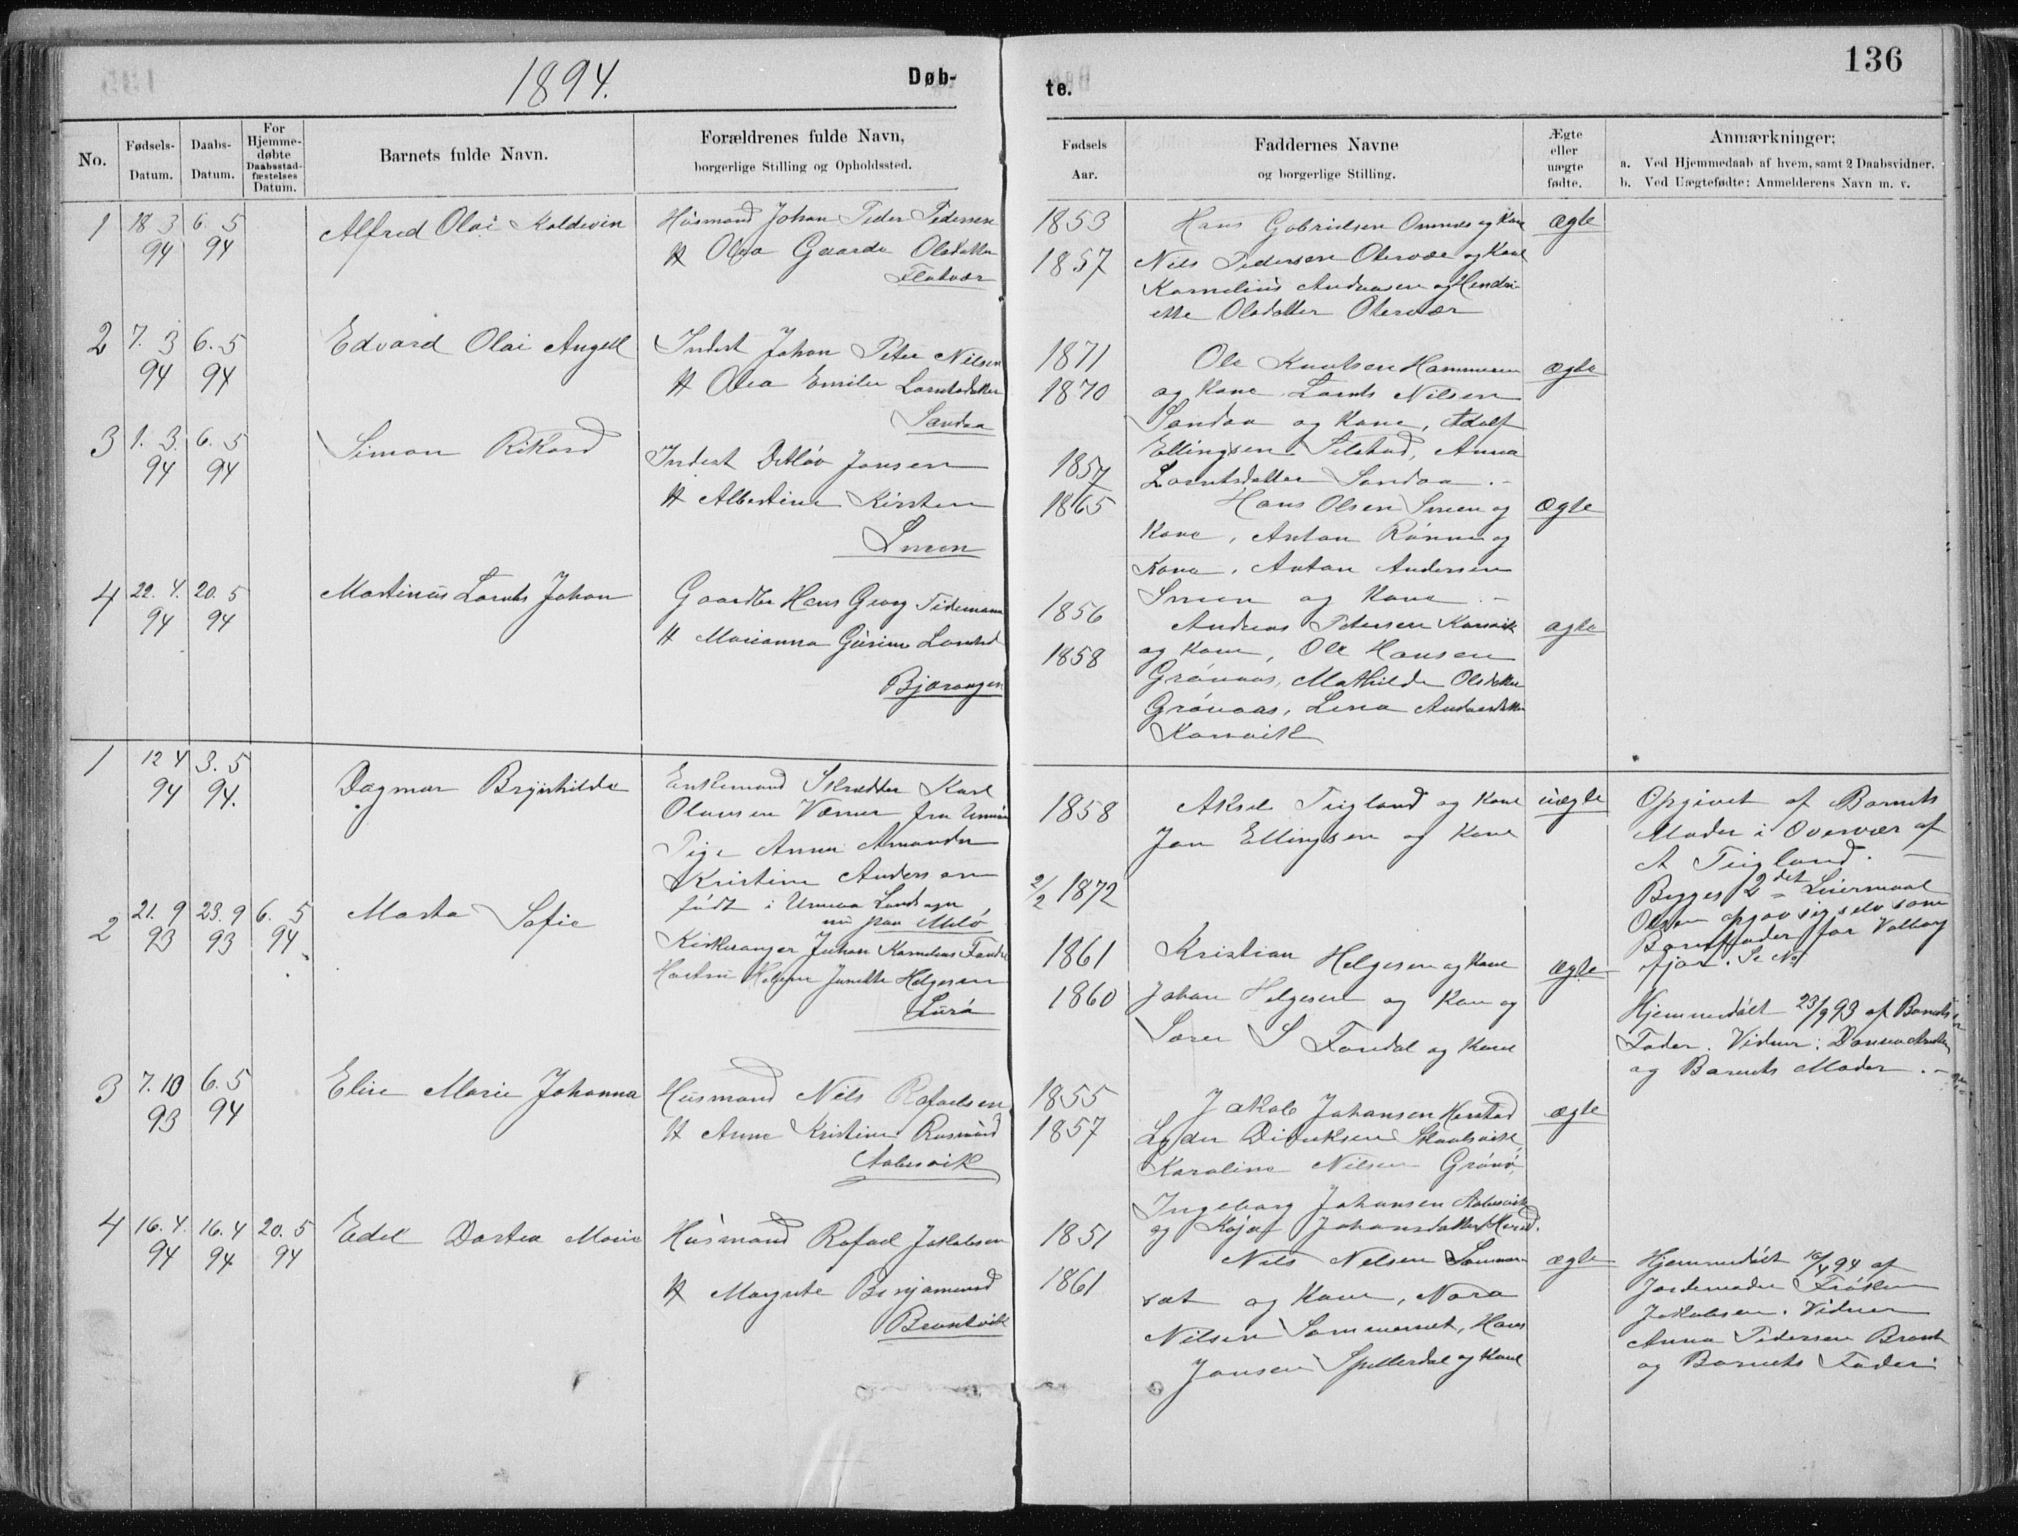 1894.
Døb-
te.
136
No.
Fødsels-
Datum.
Daabs-
Datum.
For
Hjemme-
døbte
Daabsstad-
fæstelses
Datum.
Barnets fulde Navn.
Forældrenes fulde Navn,
borgerlige Stilling og Opholdssted.
Fødsels
Aar.
Faddernes Navne
og borgerlige Stilling.
Ægte
eller
uægte
fødte.
Anmærkninger;
a. Ved Hjemmedaab af hvem, samt 2 Daabsvidner.
b. Ved Uægtefødte: Anmelderens Navn m. v.
1
18 3
94
6. 5
94
Alfred Olai Koldevin
Husmand Johan Peder Pedersen
H Olea Gaarda Olsdatter
Flatvær
1853
1857
Hans Gabrielsen Omnes og Kone
Nils Pedersen Otervær og Kone
Kornelius Andreasen og Hendri-
ette Olsdatter Otervær
ægte
2
7. 3
94
6. 5
94
Edvard Olai Angell
Inderst Johan Peter Nilsen
H Olea Emilie Lorntsdatter
Sandaa
1871
1870
Ole Knutsen Hammeren
og Kone Lornts Nilsen
Sandaa og Kone, Adolf
Ellingsen Selstad, Anna
Lorntsdatter Sandaa .-
ægte
3
1. 3.
94
6. 5
94
Simon Rikard
Inderst Detlöv Jonsen
H Albertine Kirsten
Smen
1857
1865
Hans Olsen Smen og
Kone, Anton Rönne og
Kone, Anton Andersen
Smen og Kone .-
ægte
4
22. 4.
94
20. 5
94
Martinus Lornts Johan
Gaardbr Hans Georg Tidemann
H Marianna Gurine Lorntsd
Bjærangen
1856
1858
Andreas Petersen Korsvik
og Kone, Ole Hansen
Grönaas, Mathilde Olsdatter
Grönaas, Lina Andersdatter
Korsvik
ægte
1
12 4
94
3. 5
94.
Dagmar Brynhilde
Enkemand Skrædder Karl
Olaussen Værner fra Umeå
Pige Anna Amanda
Kristine Anderson
født i Umeaa Landsogn,
nu paa Melö
1858
2/2 1872
Aksel Teigland og Kone
Jon Ellingsen og Kone
uægte
Opgivet af Barnets
Moder i Overvær af
A Teigland. —
Begges 2det Leiermaal
Olsen opgav sig selv som
Barnefader for Valborg
2
21. 9
93
23. 9
93
6. 5
94.
Marta Sofie
Kirkesanger Johan Kornelius Fondal
Hustru Helga Janette Helgesen
Lurö
1861
1860
Kristian Helgesen og Kone
Johan Helgesen og Kone og
Sören S Fondal og Kone
ægte
Hjemmedöbt 23/9 93 af Barnets
Fader. Vidner:
og Barnets Moder .-
3
7. 10
93
6. 5
94
Elise Marie Johanna
Husmand Nils Rafaelsen
H Anne Kristine Rasmusd
Aalesvik
1855
1857
Jakob Johansen Kerstad
Lyder Dineksen Skaalsvik,
Karoline Nilsen Grönö
Ingeborg Johansen Aalesvik
og Kaja Johansdatter
ægte
4
16. 4.
94
16. 4
94
20. 5
94
Edel Dortea Marie
Husmand Rafael Jakobsen
H Margrete Benjaminsd
Brantvik
1851
1861
Nils Nilsen Sommer-
sæt og Kone, Nora
Nilsen Sommersæt, Hans
Jonsen Spilderdal og Kone
ægte
Hjemmedöbt 16/4 94 af
Jordemoder Fröken
Jakobsen. Vidner
Anna Pedersen Brant
og Barnets Fader.